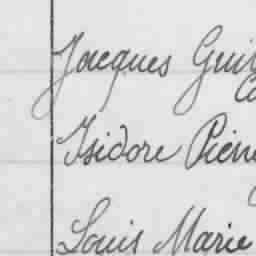 Jacques Gui
Isidore Pierre
Louis Marie